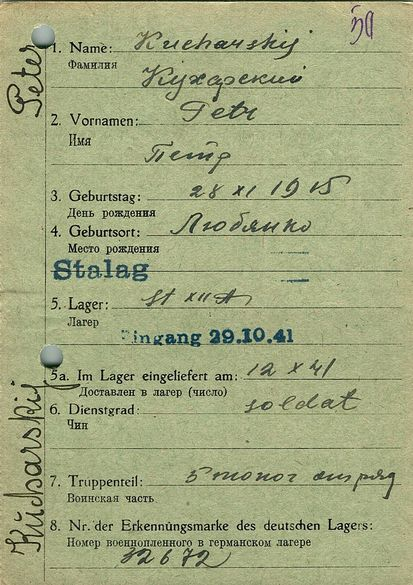 Peter
Kucharskij
1. Name: Kucharskij
Фамилия
Кухарский
2. Vornamen: Petr
Имя
Петр
3. Geburtstag: 28 XI 1915
День рождения
4. Geburtsort: Любянко
Место рождения
Stalag
5. Lager: St XII A
Лагер
Eingang 29.10.41
5a. Im Lager eingeliefert am: 12 X 41
Доставлен в лагер (число)
6. Dienstgrad: soldat
Чин
7. Truppenteil: 5
Воинская часть
8. Nr. der Erkennungsmarke des deutschen Lagers:
Номер военнопленного в германском лагере
32672